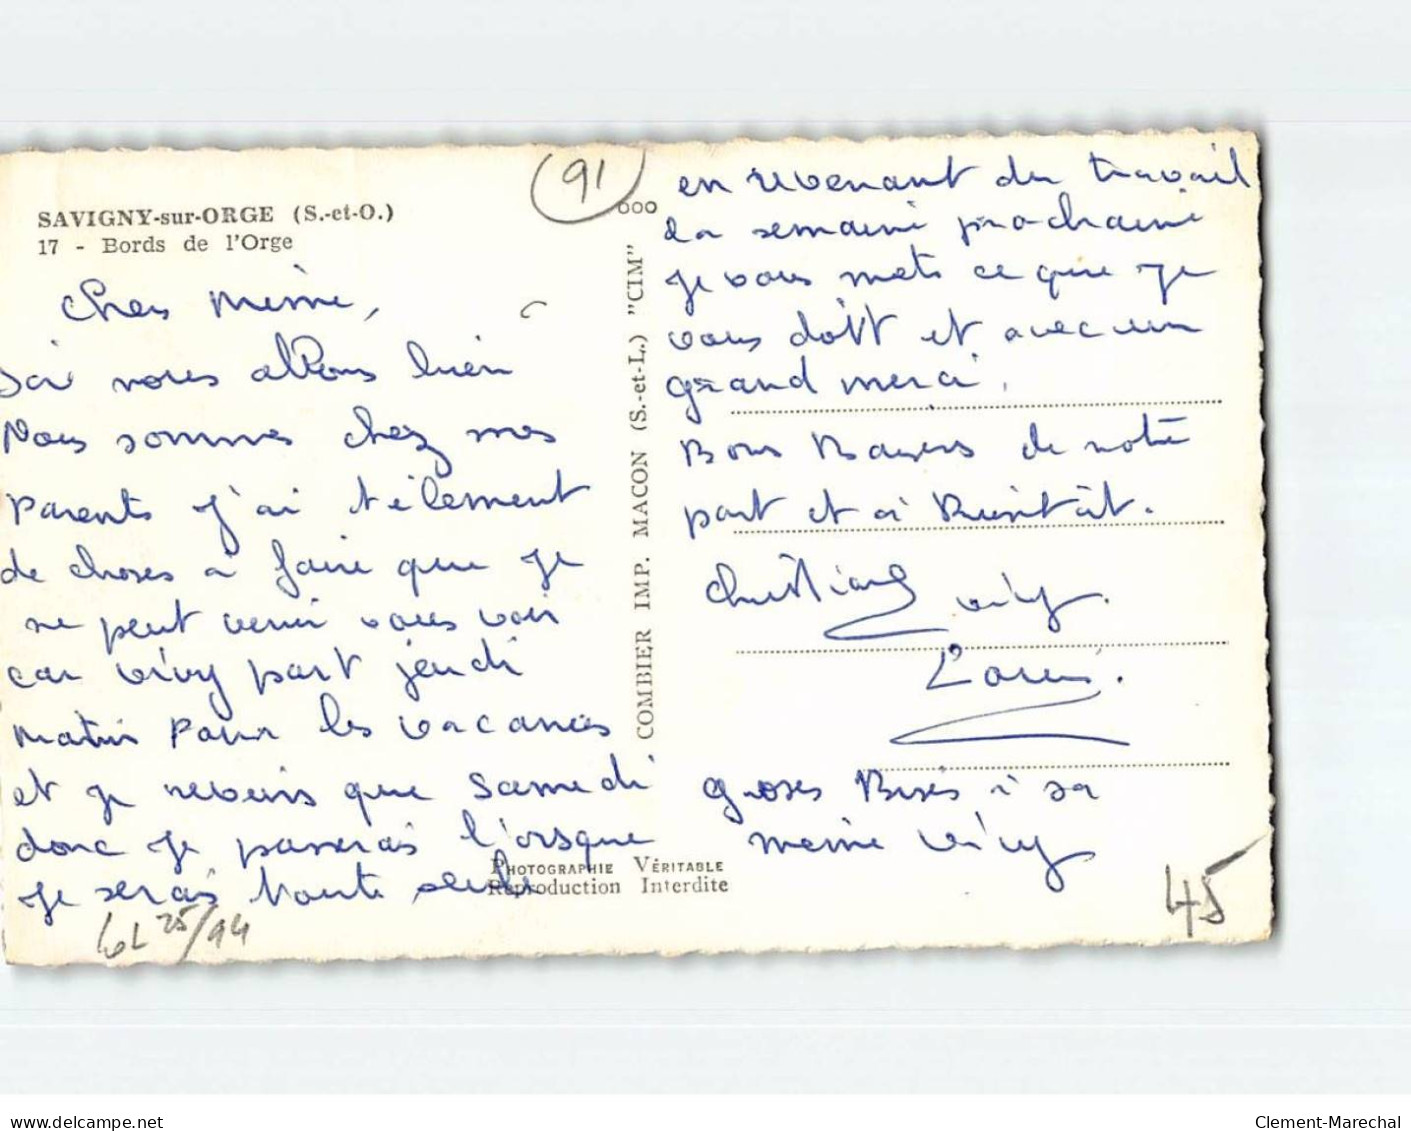 SAVIGNY-sur-ORGE (S.-et-O.)
17 - Bords de l'Orge
91
Cher Mémé,
Ici nous allons bien
Nous sommes chez mes
parents j'ai télement
de choses à faire que je
ne peut venir vous voir
car Vivy part jeudi
matin pour les vacances
et je reviens que samedi
donc je passerais l'orsque
je serais toute seule
6L 25/94
COMBIER IMP. MACON (S.-et-L.) "CIM"
PHOTOGRAPHIE VÉRITABLE
Reproduction Interdite
en revenant du travail
la semaine prochaine
je vous mets ce que je
vous doit et avec un
grand merci.
Bons Baisers de notre
part et à Bientôt.
Christiane Vivy.
Louis.
Groses Bises à sa
mémé Vivy
45
www.delcampe.net
Clement-Marechal